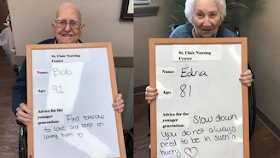 St. Clair Nursing
Center
Name: Bob
91
Advice for the
younger
generation: Find someone
to love and keep on
loving them ♡
St. Clair Nursing
Center
Name: Edna
81
Advice for the
younger
generation: Slow down
You do not always
need to be in such a
hurry ♡